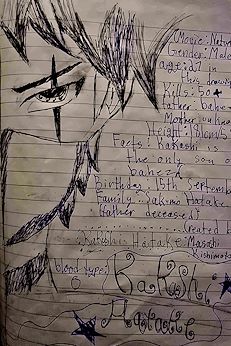 (Movie: Natu
Gender: Male
age: 27 in
this drawing
Kills: 50+
father bahezn
Mother: unknow
Height: 181cm
Facts: Kakashi is
the only son of
bahezn
Birthday: 15th September
Family: Sakmo Hatake
(father deceased)
Created b
Kakashi Hatake: Masas
Kishimoto
blood type:
O
Kakashi
Hatake